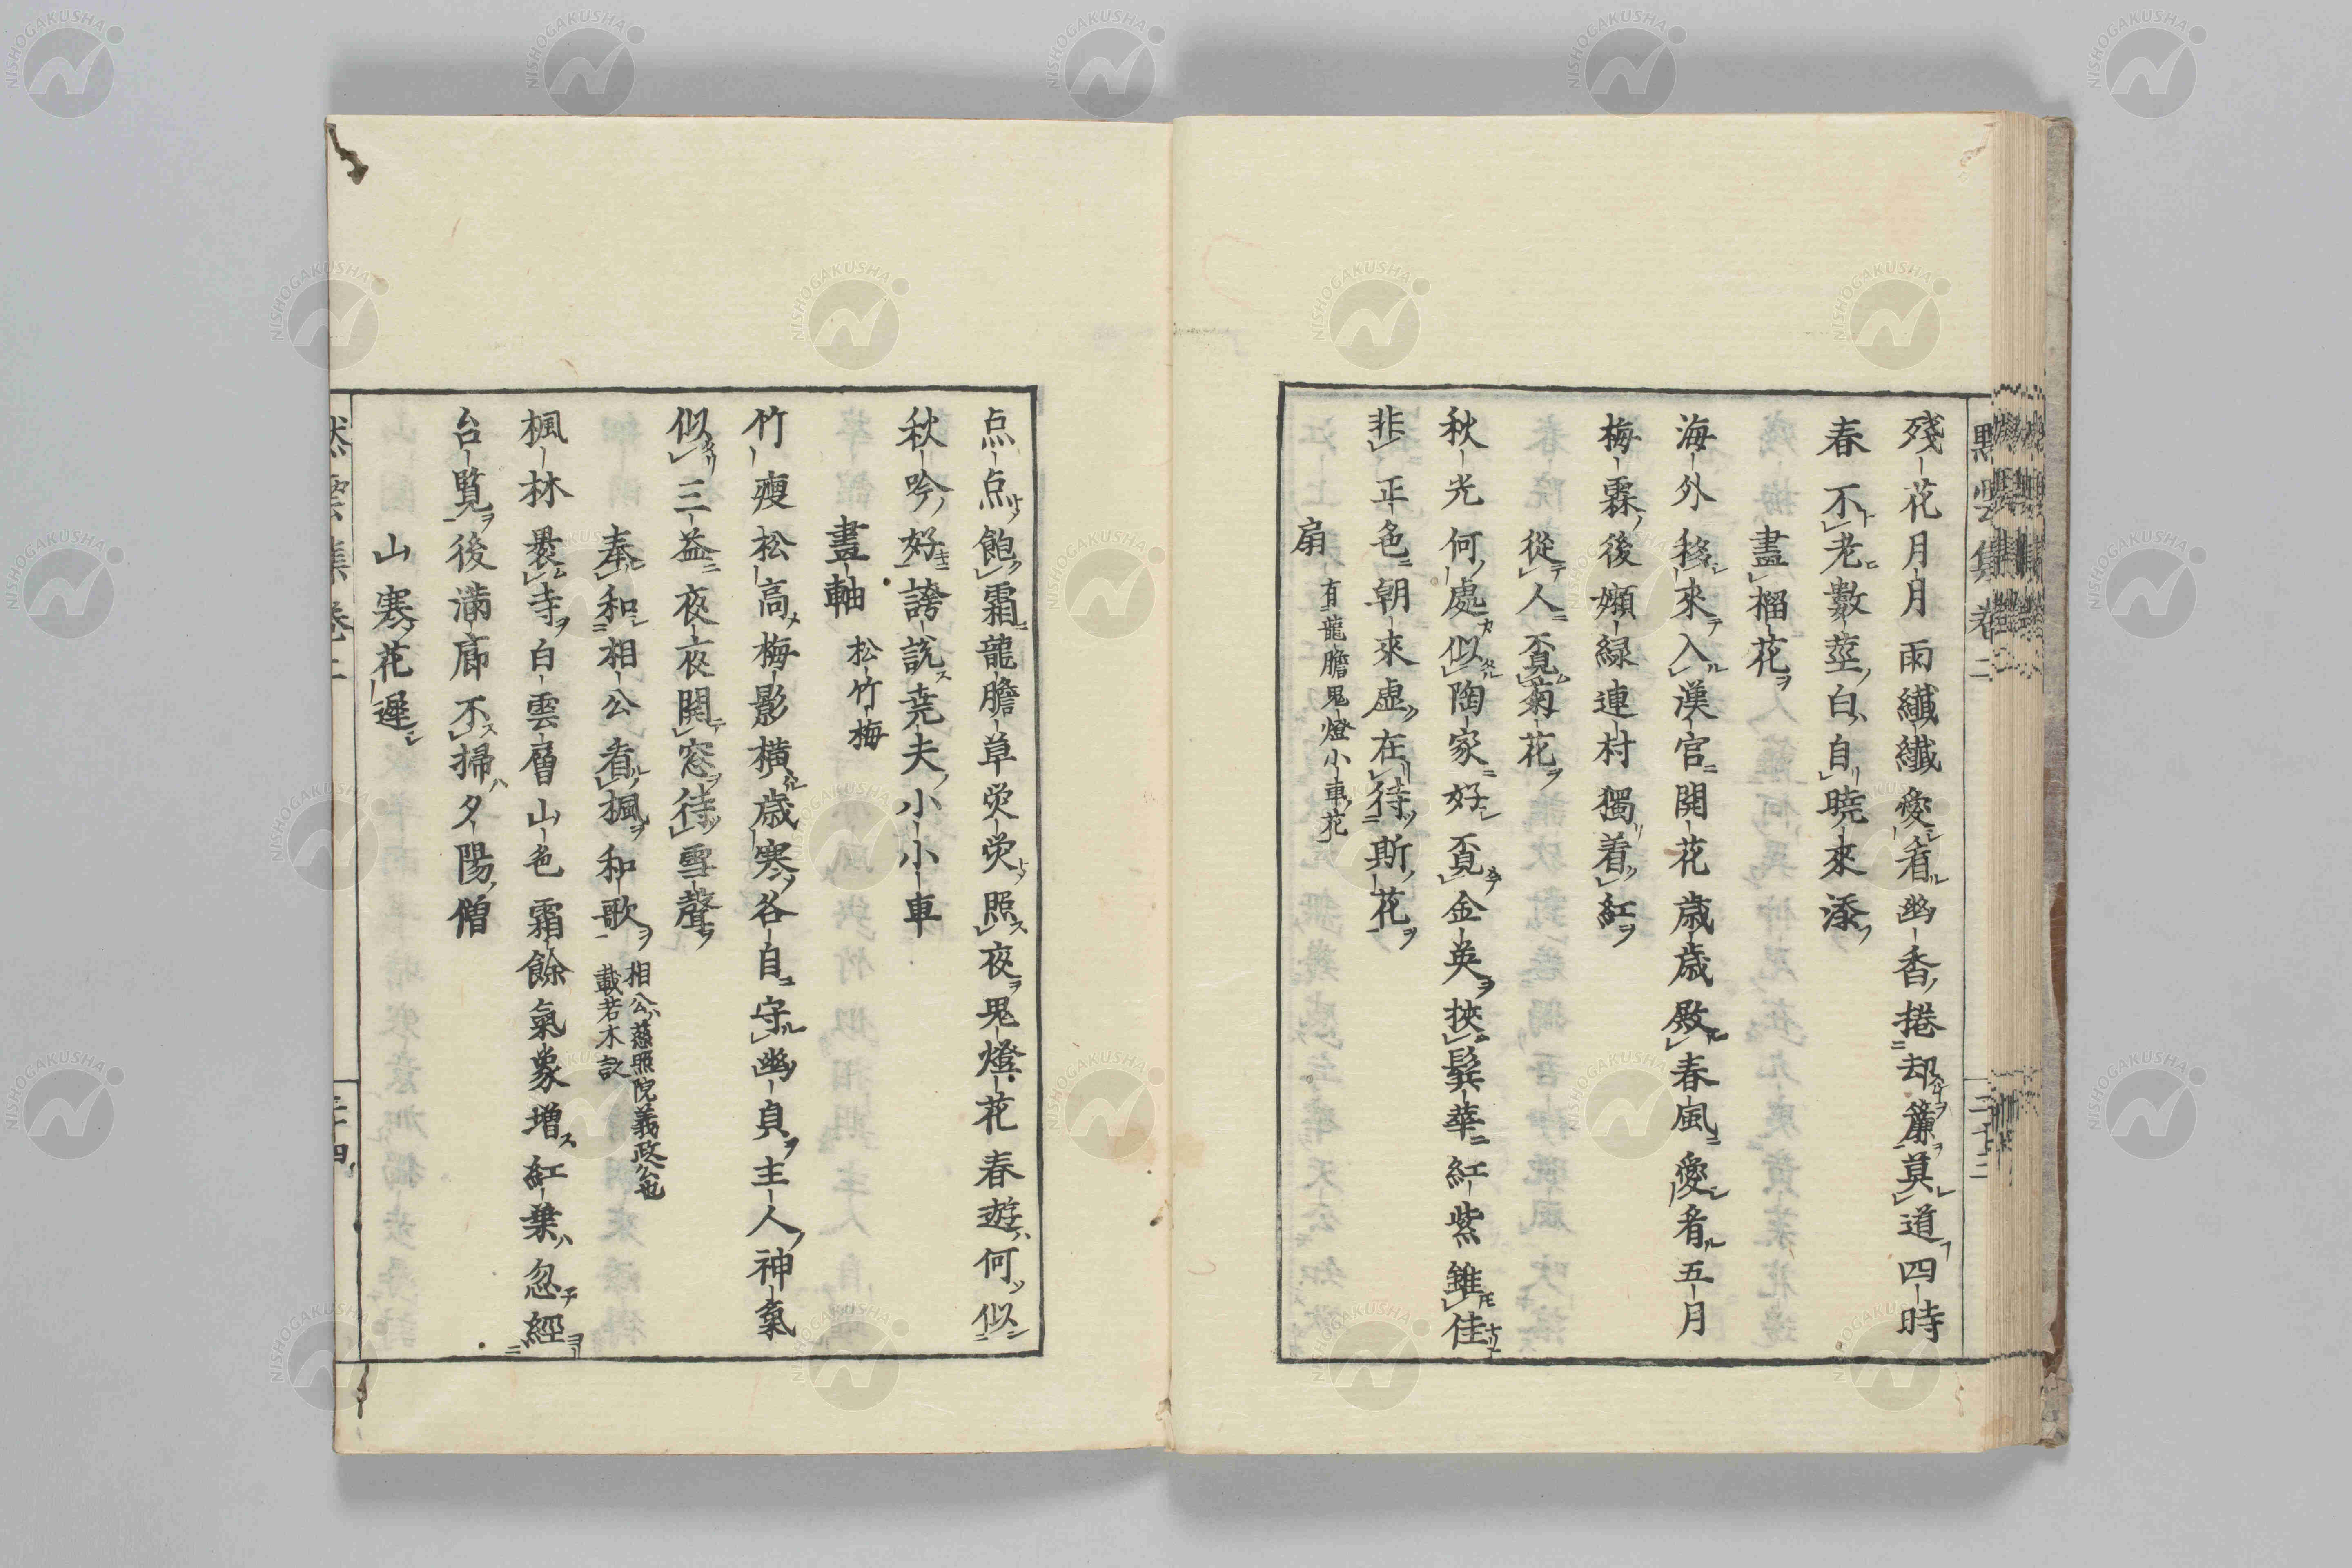 黙雲集 卷二 二十三
殘花月月雨纖纖愛看幽香捲却簾莫道四時
春不老數莖白自曉來添
畫榴花
海外移來入漢宮開花歲歲殿春風愛看五月
梅霖後嫩綠連村獨着紅
從人覔菊花
秋光何處似陶家好覔金英挾鬢華紅紫雖佳
非正色朝來虛在待斯花
扇 有龍膽鬼燈小車花
点点飽霜龍膽草熒熒照夜鬼燈花春遊何似
秋吟好誇說尭夫小小車
畫軸 松竹梅
竹瘦松高梅影橫歲寒各自守幽貞主人神氣
似三益夜夜開窓待雪聲
奉和相公看楓和歌 相公慈照院義政公也 載若木記
楓林褁寺白雲層山色霜餘氣象增紅葉忽經
台覧後滿廊不掃夕陽僧
山寒花遲
雲集 卷二
NISHOGAKUSHA